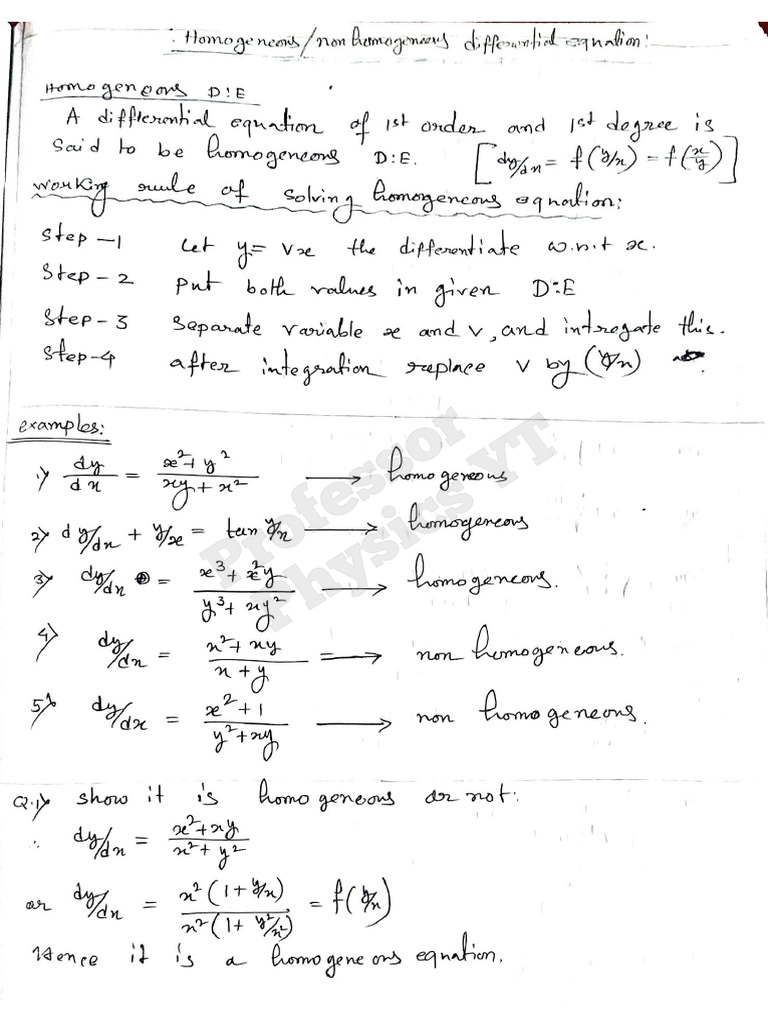 Homogeneous/non homogeneous differential equation:
Homogeneous D:E
A differential equation of 1st order and 1st degree is
said to be homogeneous D:E. [dy/dx = f(y/x) = f(x/y)]
working rule of solving homogeneous equation:
Step-1 Let y = vx the differentiate w.r.t x.
Step-2 Put both values in given D:E
Step-3 Separate variable x and v, and intregate this.
Step-4 after integration replace v by (y/x)
examples:
1) dy/dx = x²+y² / xy+x² → homogeneous
2) dy/dx + y/x = tan y/x → homogeneous
3) dy/dx = x³+x²y / y³+xy² → homogeneous.
4) dy/dx = x²+xy / x+y → non homogeneous.
5) dy/dx = x²+1 / y²+xy → non homogeneous.
Q.1) show it is homogeneous or not:
∴ dy/dx = x²+xy / x²+y²
or dy/dx = x²(1+y/x) / x²(1+y²/x²) = f(y/x)
Hence it is a homogeneous equation.
Professor
Physics YT